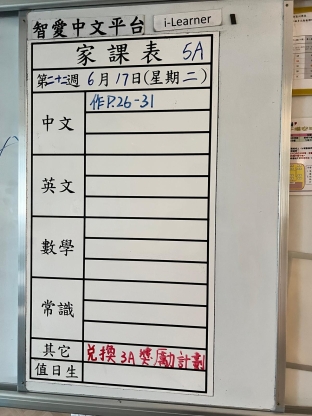 智愛中文平台 i-Learner
家課表 5A
第二十二週 6月17日(星期二)
中文 作P.26-31
英文
數學
常識
其它 兌換3A獎勵計劃
值日生